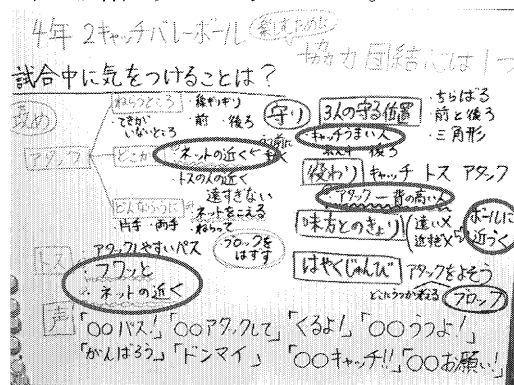 4年 2キャッチバレーボール 楽しむために
協力 団結 心は1つ
試合中に気をつけることは?
攻め
ねらうところ
・線ギリギリ
・てきがいないところ
・前 ・後ろ
アタック
どこから
・ネットの近く
・トスの人の近く
遠すぎない
どんなふうに
・ネットをこえる
・片手 ・両手 ・ねらって
ブロックをはずす
トス
・アタックしやすいパス
・フワッと
・ネットの近く
守り
3人の守る位置
・ちらばる
・前と後ろ
・三角形
・キャッチうまい人
後ろ
役わり キャッチ トス アタック
アタック―背の高い人
味方とのきょり
遠い×
近すぎ×
ボールに近づく
はやくじゅんび
アタックをよそう
どこにうつか考える
ブロック
声
「○○パス!」「○○アタックして」「くるよ!」「○○うつよ!」
「がんばろう」「ドンマイ」「○○キャッチ!!」「○○お願い!」